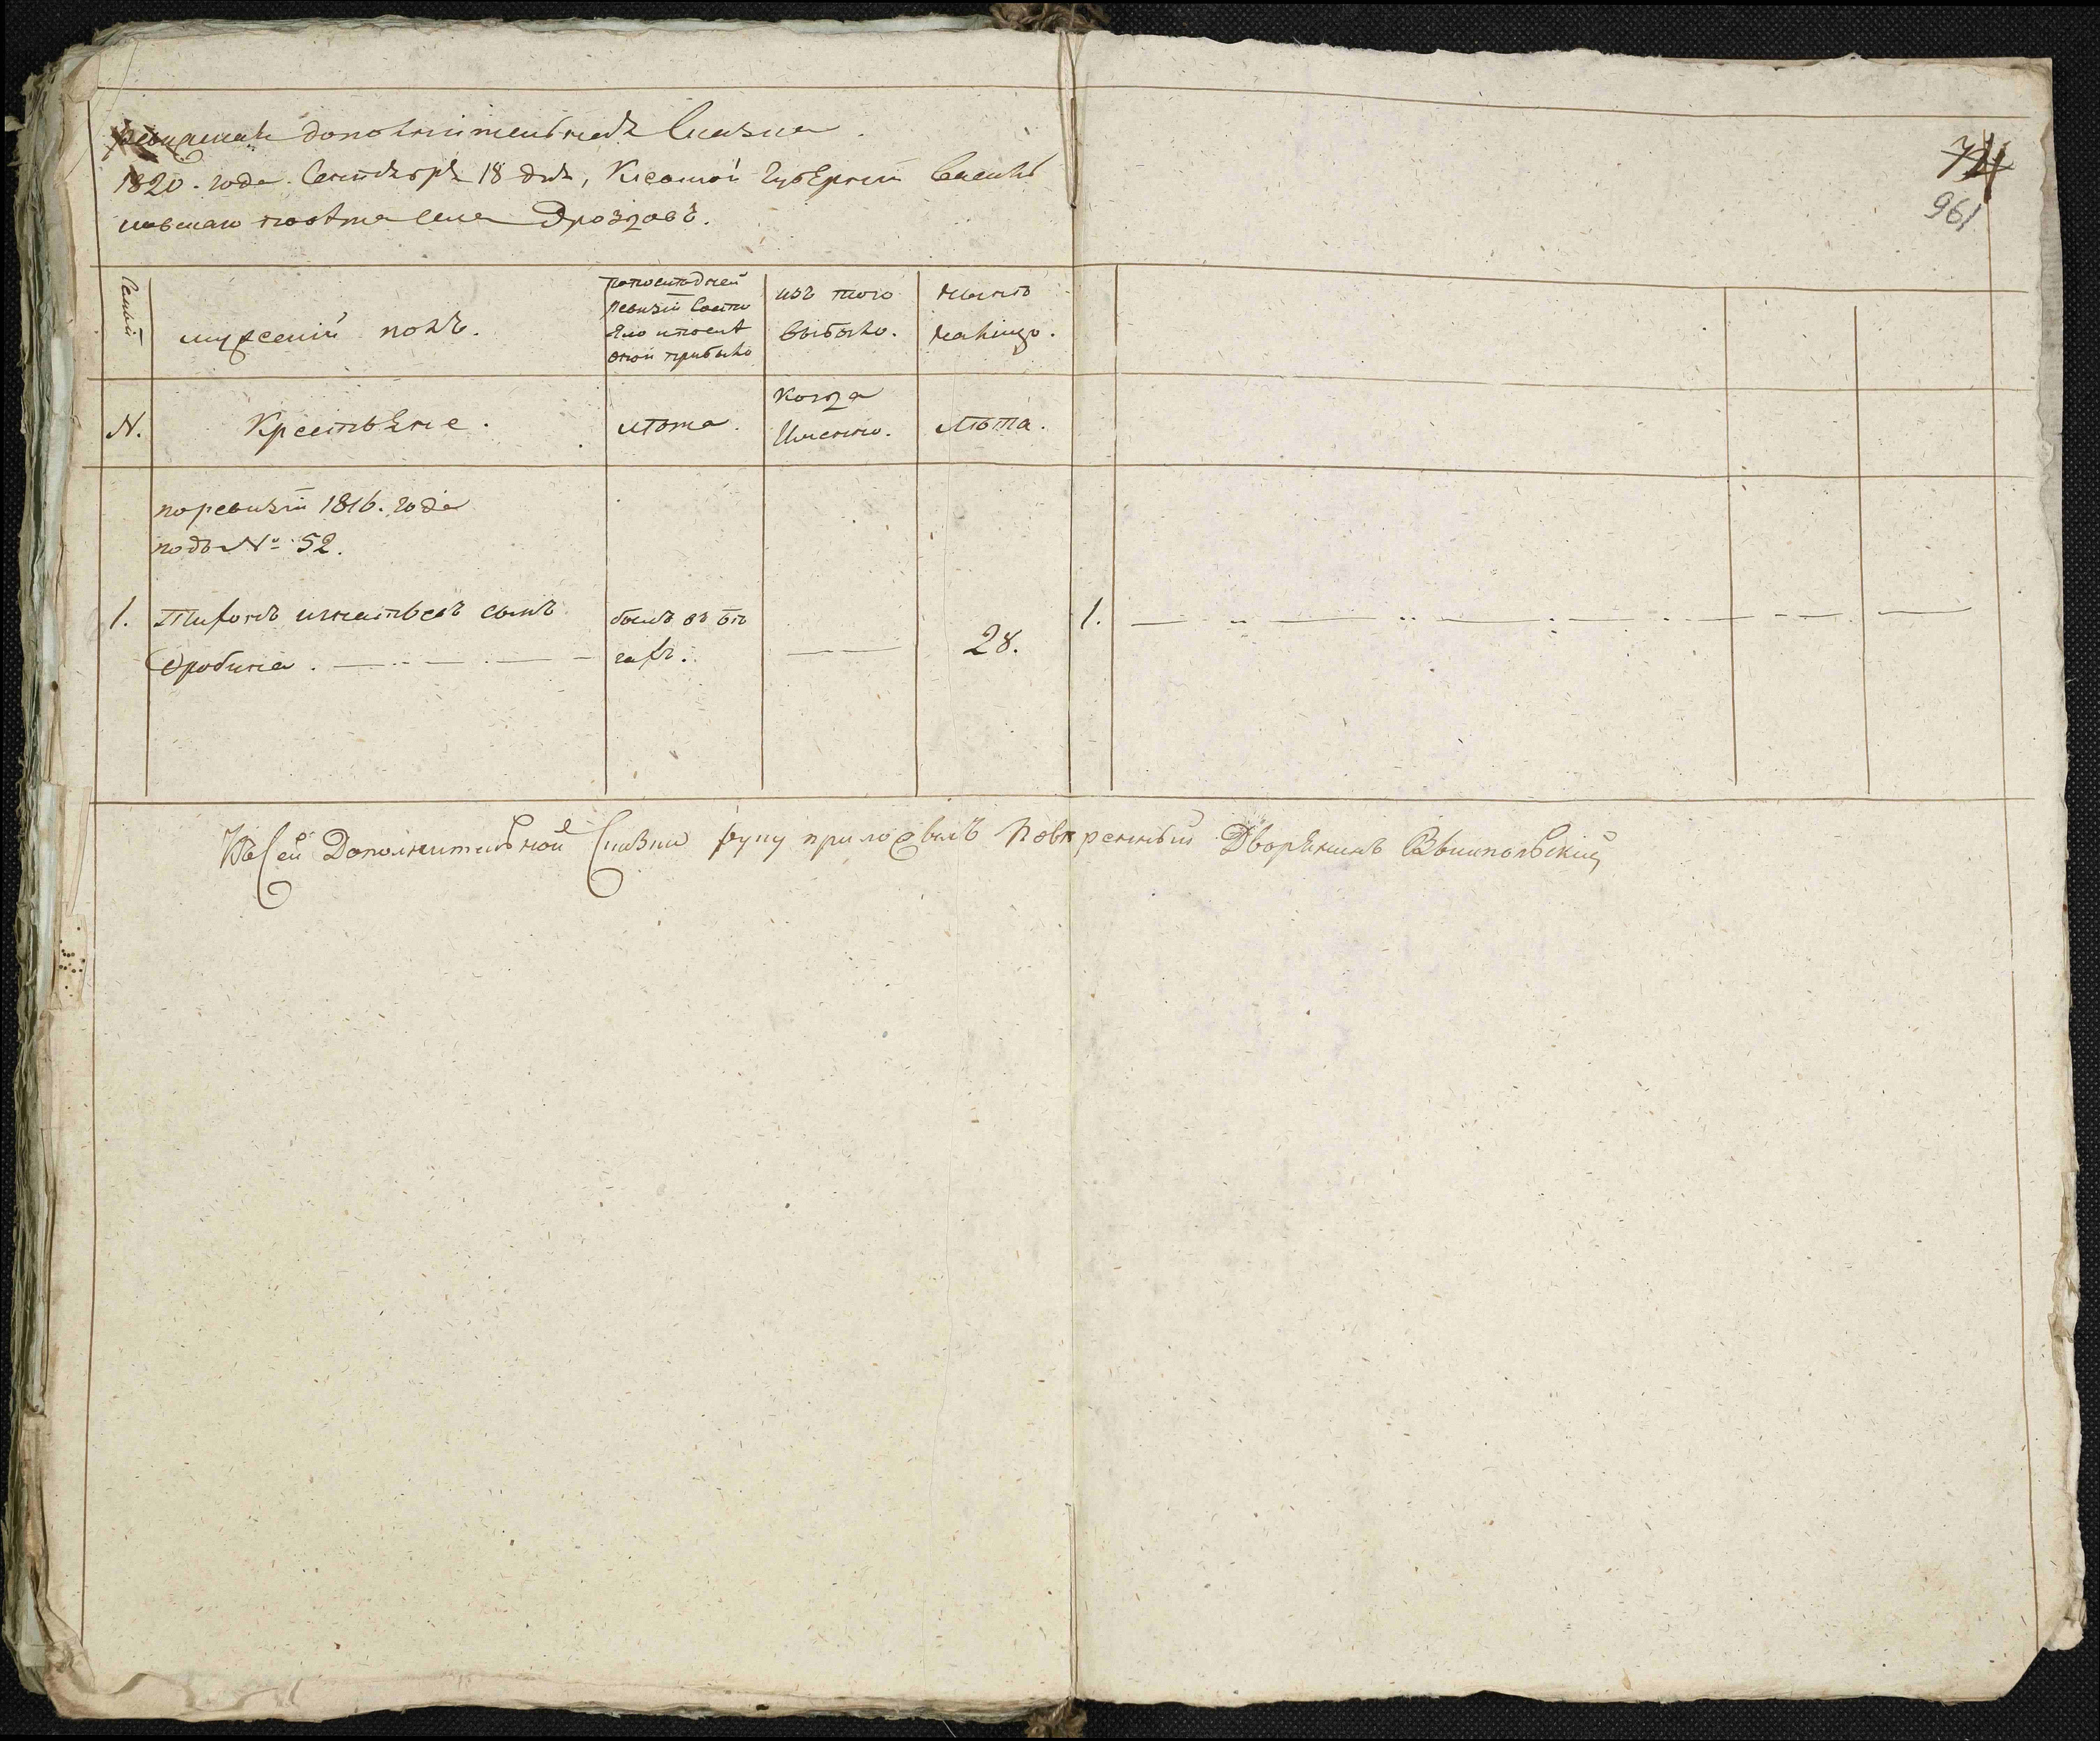 Ревизская дополнительная Сказка.
1820. года. Сентября 18 дня, Киевской Губернии Василь
ковскаго повѣта села Дроздовъ.
74
961
Семьи
мужескій полъ.
попоследней
Ревизіи Состо
яло ипослѣ
оной прибыло
изъ того
выбыло.
нынѣ
налицо.
N.
Крестьяне.
лѣта.
когда
Имянно.
лѣта.
поревизіи 1816. года
подъ № 52.
1.
Тихонъ игнатьевъ сынъ
Дробина.
былъ въ бѣ
гахъ.
28.
1.
Къ Сей Дополнительной Сказки руку приложилъ Повѣренный Дворянинъ